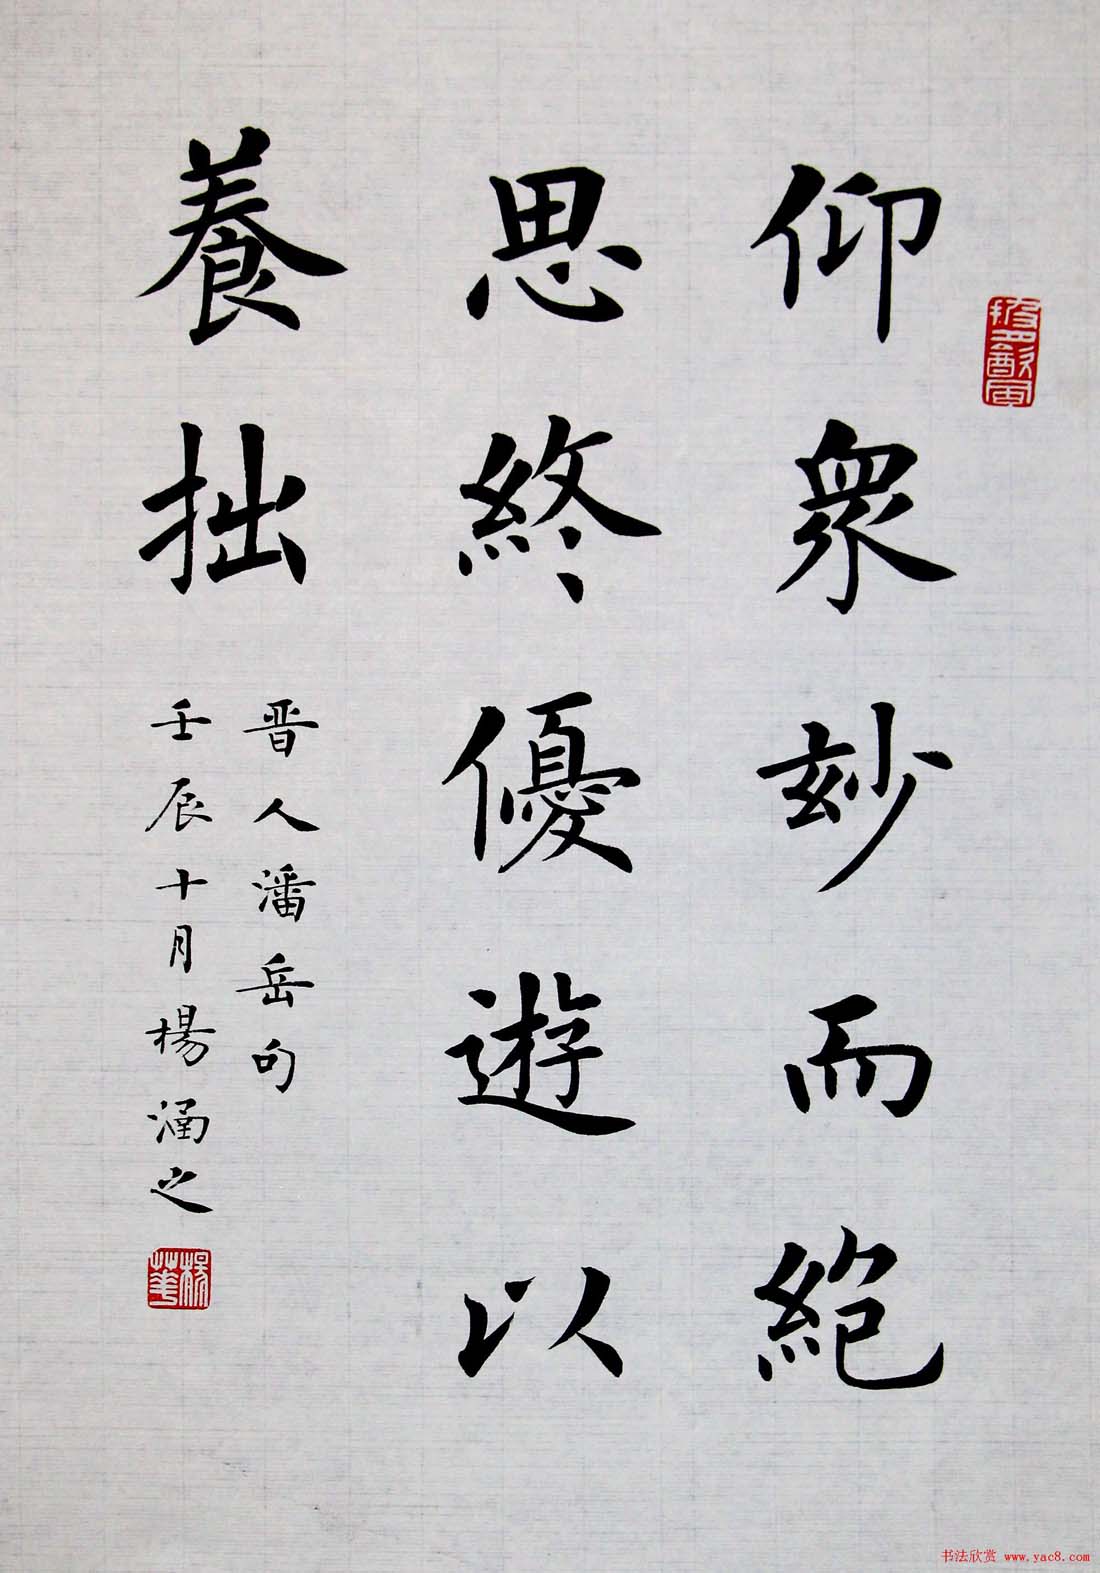 仰衆玅而絶
思終優遊以
養拙
晋人潘岳句
壬辰十月楊涵之
楊華
书法欣赏 www.yac8.com